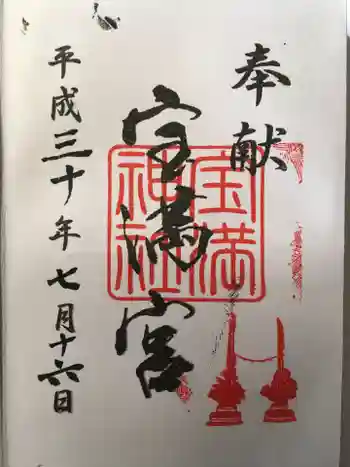 奉献
宝満宮
宝満
神社
平成三十年七月十六日